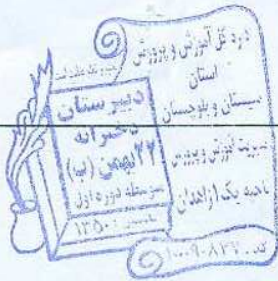 اداره کل آموزش و پرورش
استان
سیستان و بلوچستان
مدیریت آموزش و پرورش
ناحیه یک زاهدان
دبیرستان
دخترانه
۲۲ بهمن (ب)
متوسطه دوره اول
۱۳۵۰
کد: ۱۰۰۹۰۸۳۷